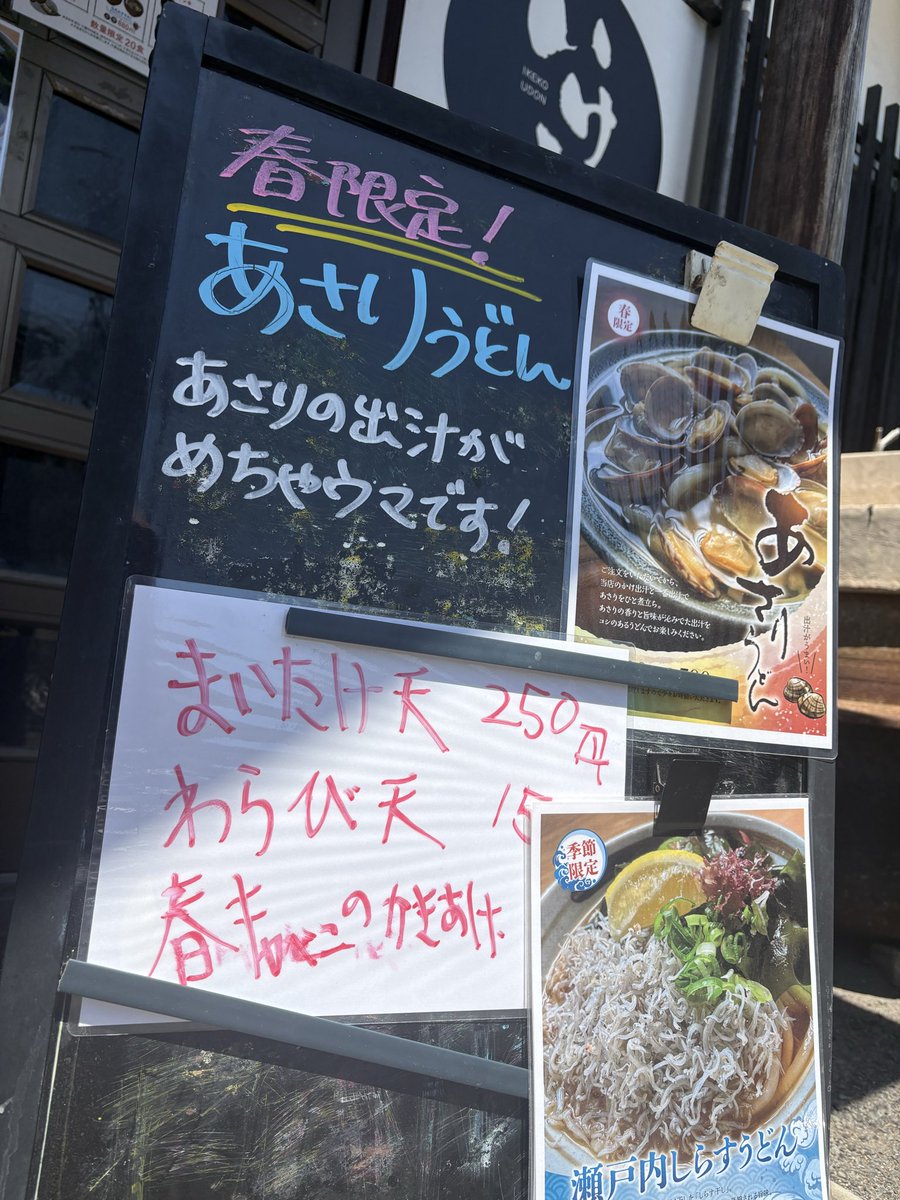 数量限定20食
IKEKO
UDON
春限定!
あさりうどん
あさりの出汁が
めちゃウマです!
春
限定
あさりうどん
出汁がうまい!
ご注文をいただいてから、
当店のかけ出汁と一番出汁で
あさりをひと煮立ち。
あさりの香りと旨味が沁みてた出汁を
コシのあるうどんでお楽しみください。
まいたけ天 250円
わらび天 15
春キャベツのかきあげ
季節
限定
瀬戸内しらすうどん